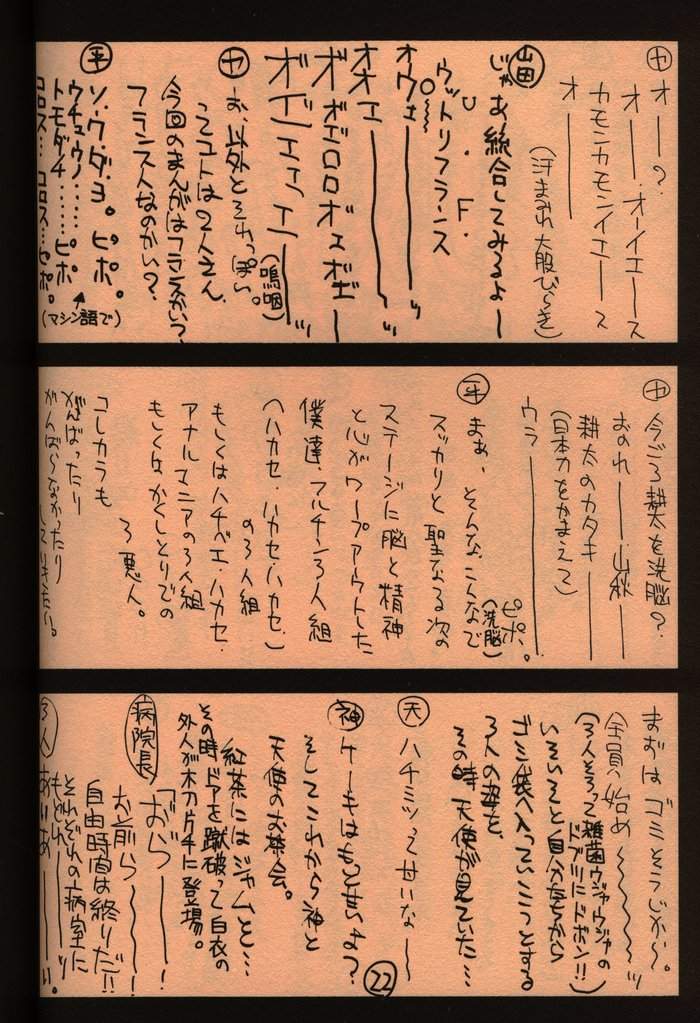 ヤ オー?
オー・オーイエース
カモンカモンイエース
オー
(汗まみれ大股びらき)
山田 じゃあ統合してみるよー
U.F.
O
ウットリフランス
オウェー
オオェー
ボボエロロボェボゼー
ボエエェエー
(嗚咽)
ヤ お、以外とそれっぽい。
ってコトは2人さん、
今回のまんがはフランスかい?
フランス人なのかい?
平 ソ・ウ・ダ・ヨ。ピポ。
ウチュウノ……ピポ
トモダチ
コロス…コロス…ピポ。
(マシン語で)
ヤ 今ごろ耕太を洗脳?
おのれ――山秋――
耕太のカタキ――
(日本刀をかまえて)
ウラ――
平 まぁ、そんなこんなで
ピポ。
(洗脳)
スッカリと聖なる次の
ステージに脳と精神
と心がワープアウトした
僕達、フルチン3人組
(ハカセ・ハカセ・ハカセ)
の3人組
もしくはハチベエ・ハカセ・
アナルマニアの3人組
もしくはかくしとりでの
3悪人。
コレカラも
がんばったり
がんばらなかったり
していきたい。
まずはゴミそうじから〜。
全員始め〜
(3人そろって雑菌ウジャウジャの
ドブ川にドボン!!)
いそいそと自分たちから
ゴミ袋へ入っていこうとする
3人の姿を、
その時天使が見ていた…
天 ハチミツって甘いな〜
神 ケーキはもっと甘いよ?
そしてこれから神と
天使のお茶会。
紅茶にはジャムと…
その時ドアを蹴破って白衣の
外人が木刀片手に登場。
病院長 「おら――!
お前ら――!
自由時間は終りだ!!
それぞれの病室に
もどれ――ッ
3人 あいあ――い。
22